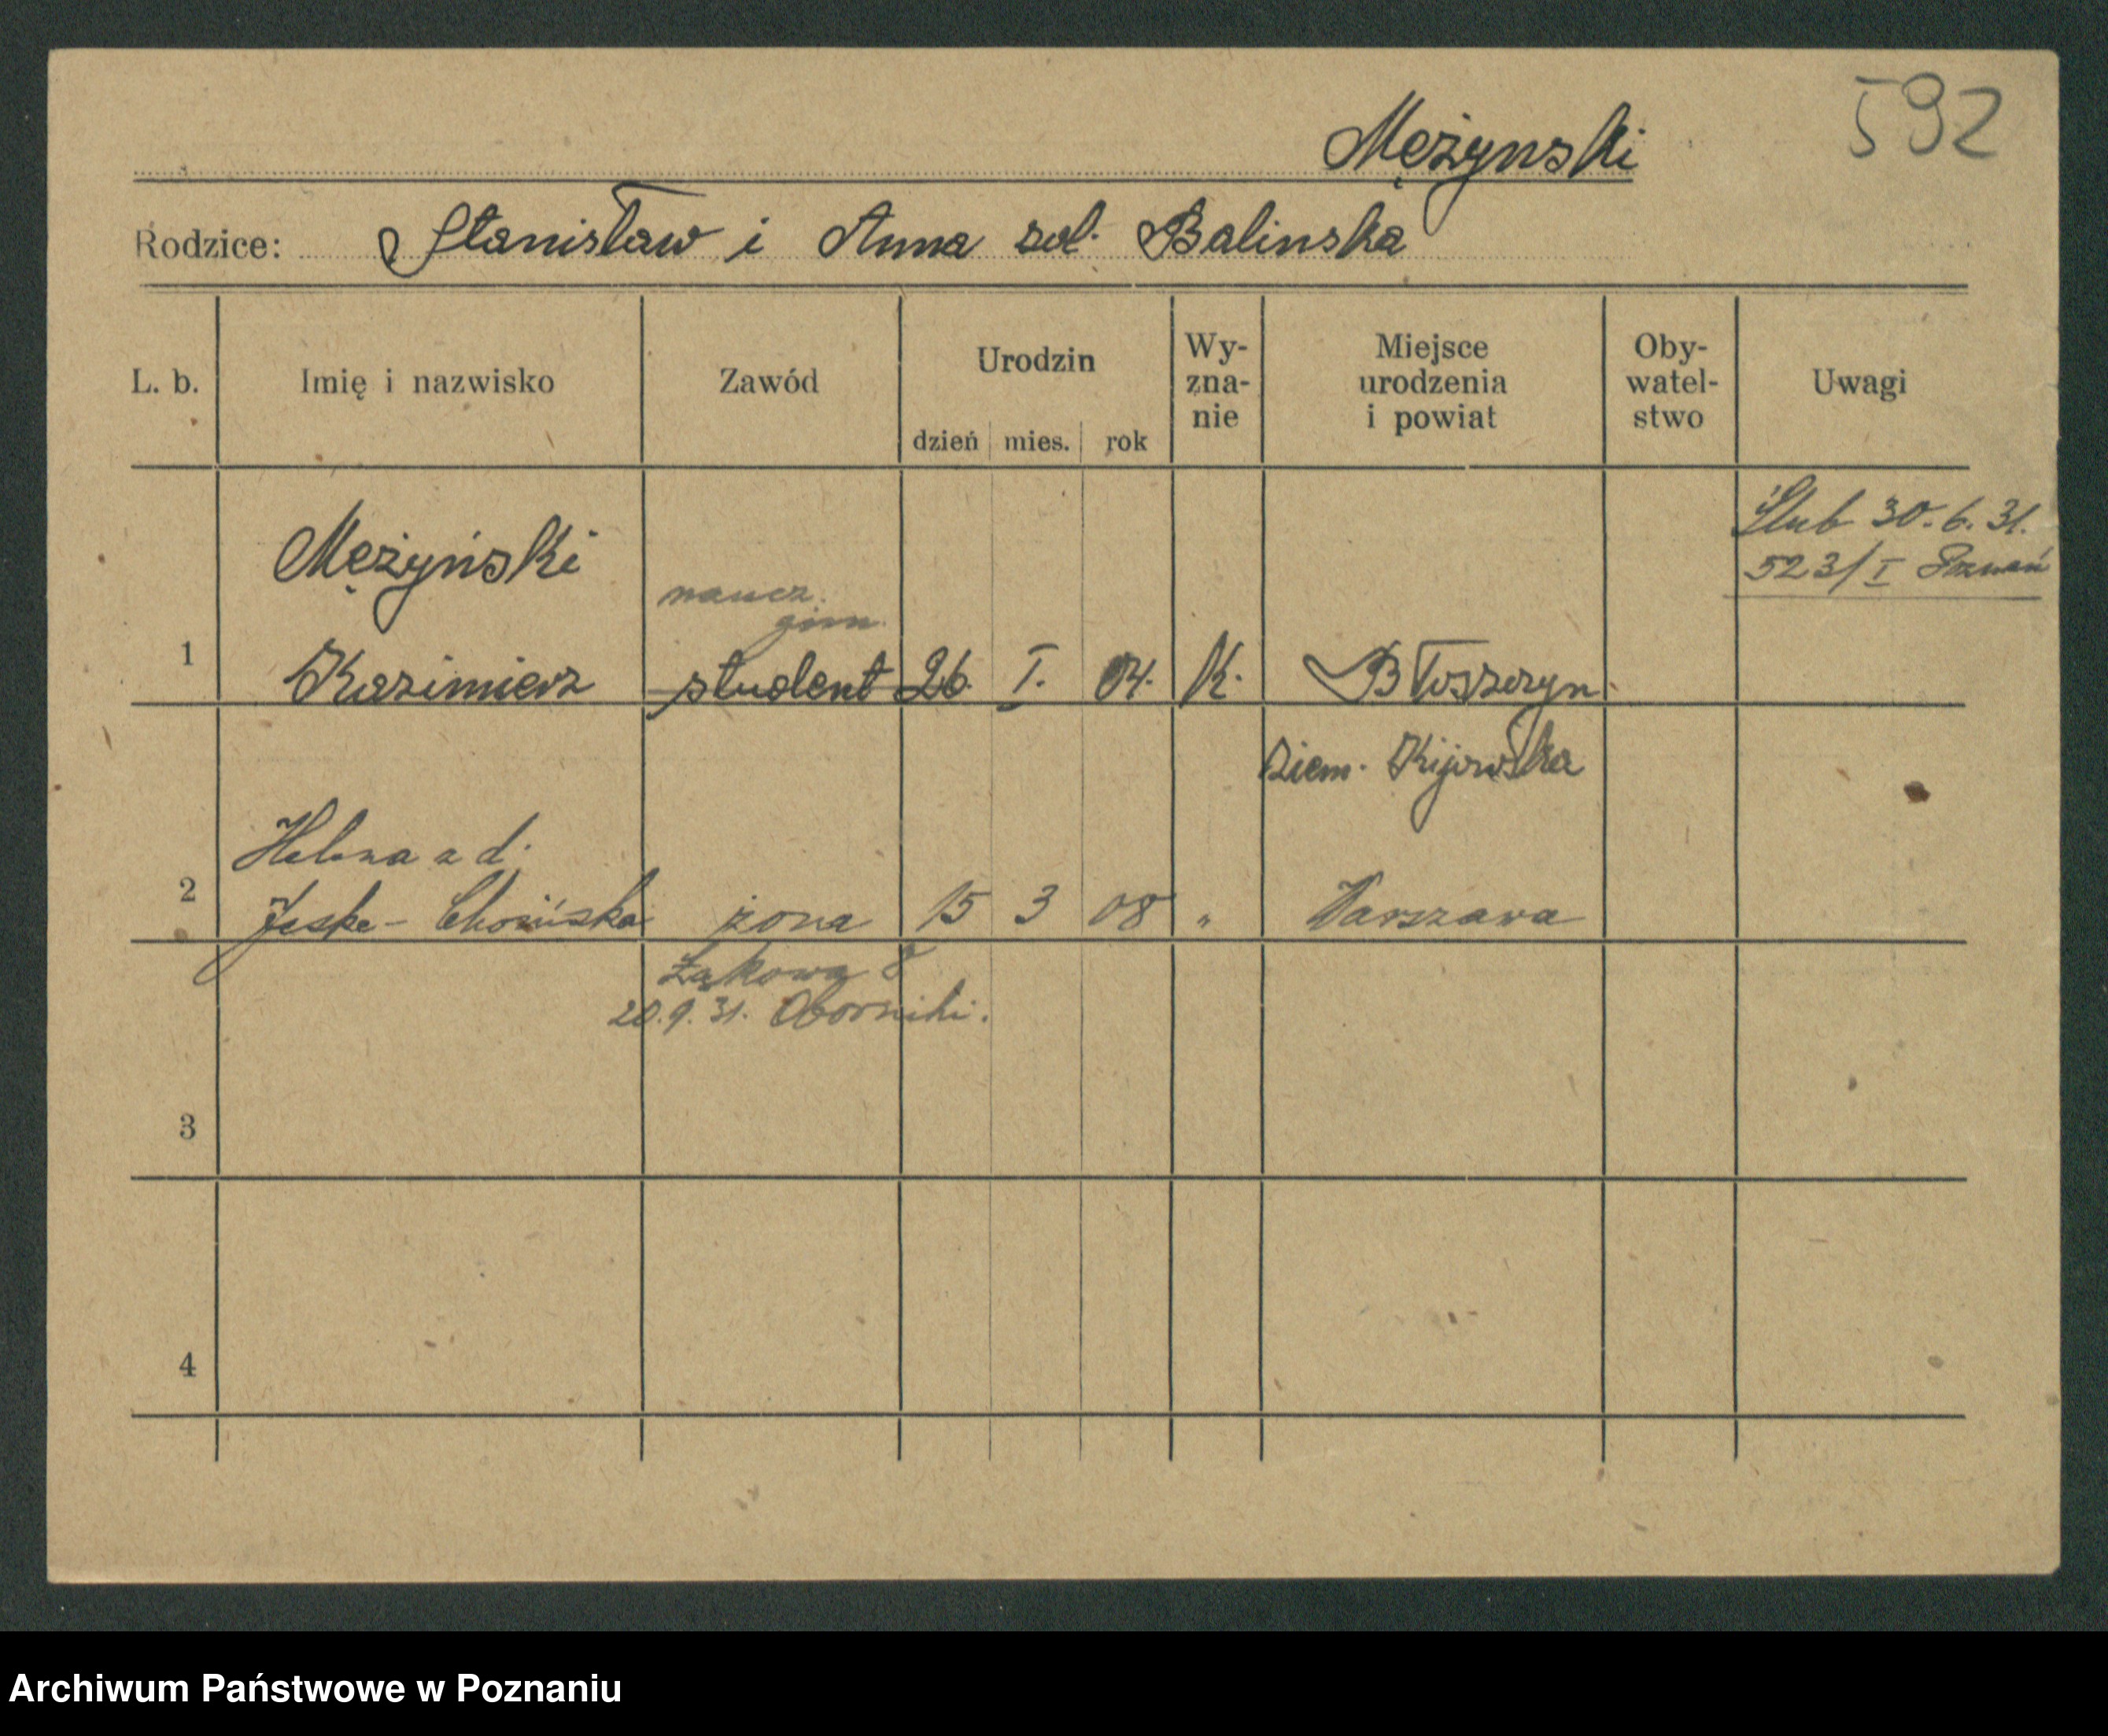 592
Mężynski
Rodzice: Stanisław i Anna zol. Balinska
L. b. Imię i nazwisko Zawód Urodzin dzień mies. rok Wy-zna-nie Miejsce urodzenia i powiat Oby-watel-stwo Uwagi
Ślub 30. 6. 31.
523/I Poznań
Mężyński
naucz.
gimn.
1 Kazimierz student 26. I. 04. K. Błoszczyn
Ziem. Kijowska
Helena z d.
2 Jeske-Choińska żona 15 3 08 " Warszawa
Łąkowa 8
20.9.31. Oborniki.
3
4
Archiwum Państwowe w Poznaniu